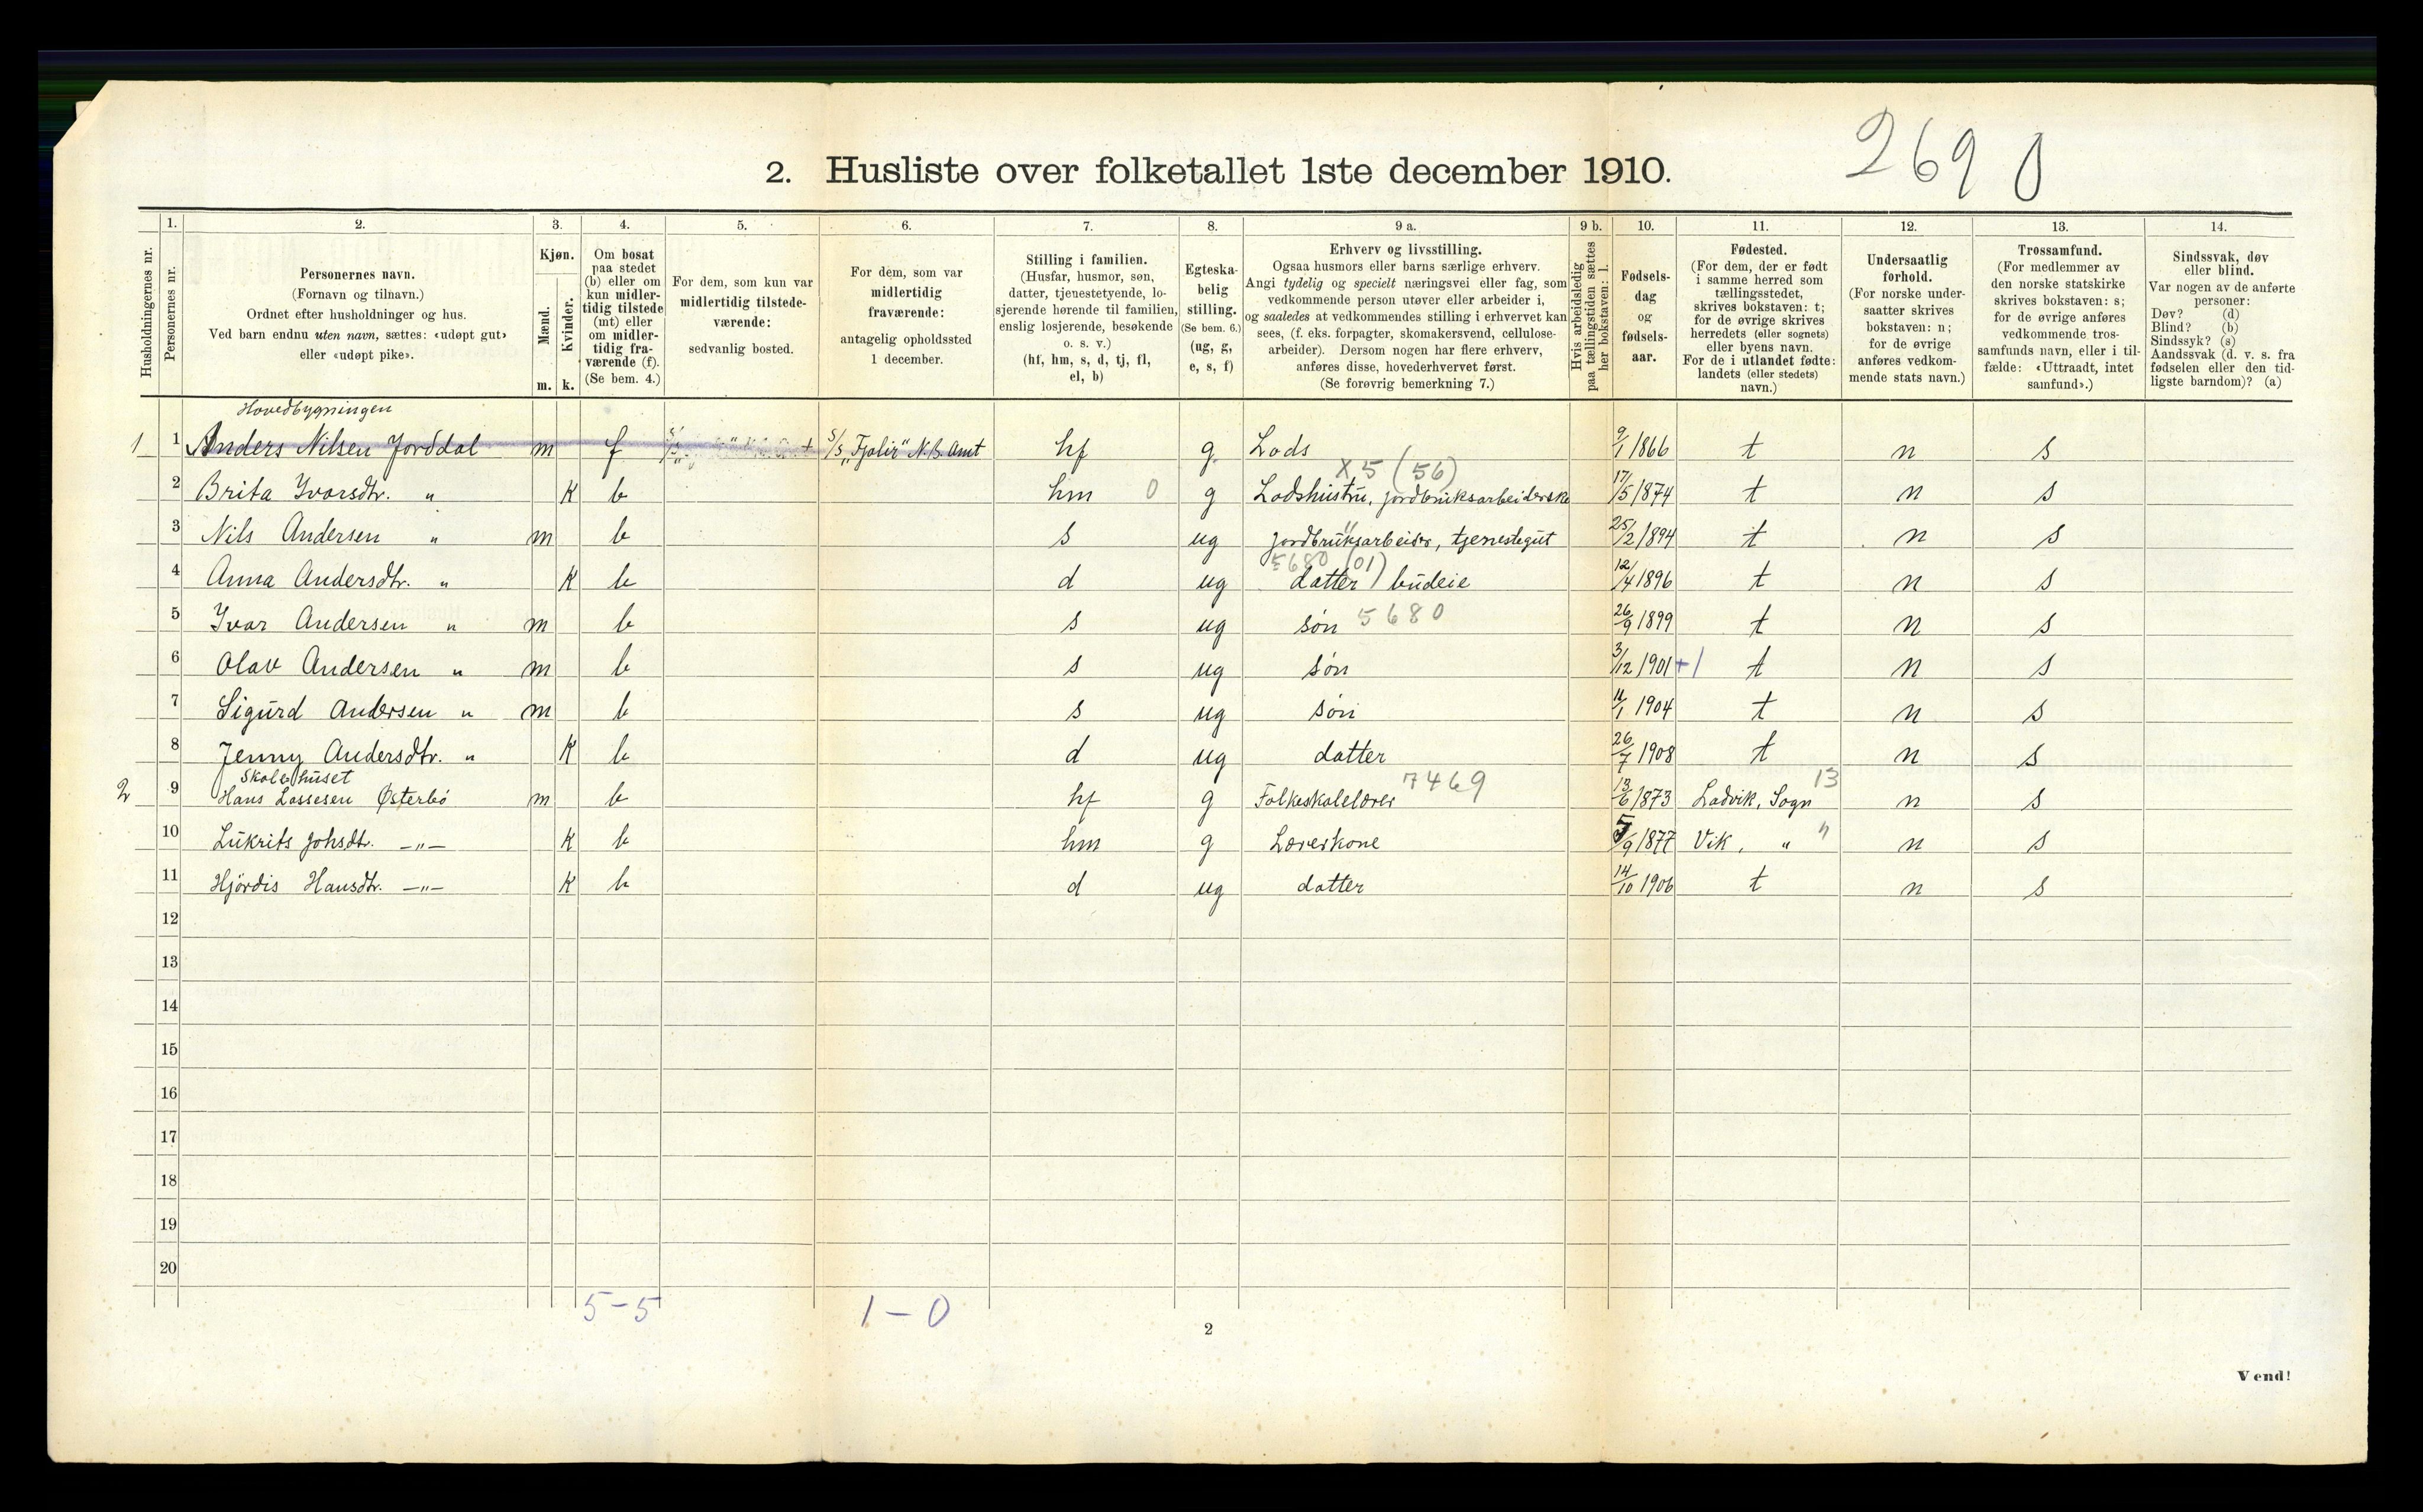 2690
2. Husliste over folketallet 1ste december 1910.
Husholdningernes nr.
1. Personernes nr.
2. Personernes navn. (Fornavn og tilnavn.) Ordnet efter husholdninger og hus. Ved barn endnu uten navn, sættes: «udøpt gut» eller «udøpt pike».
3. Kjøn. Mænd. m. Kvinder. k.
4. Om bosat paa stedet (b) eller om kun midlertidig tilstede (mt) eller om midlertidig fraværende (f). (Se bem. 4.)
5. For dem, som kun var midlertidig tilstedeværende: sedvanlig bosted.
6. For dem, som var midlertidig fraværende: antagelig opholdssted 1 december.
7. Stilling i familien. (Husfar, husmor, søn, datter, tjenestetyende, losjerende hørende til familien, enslig losjerende, besøkende o. s. v.) (hf, hm, s, d, tj, fl, el, b)
8. Egteskabelig stilling. (Se bem. 6.) (ug, g, e, s, f)
9 a. Erhverv og livsstilling. Ogsaa husmors eller barns særlige erhverv. Angi tydelig og specielt næringsvei eller fag, som vedkommende person utøver eller arbeider i, og saaledes at vedkommendes stilling i erhvervet kan sees, (f. eks. forpagter, skomakersvend, cellulosearbeider). Dersom nogen har flere erhverv, anføres disse, hovederhvervet først. (Se forøvrig bemerkning 7.)
9 b. Hvis arbeidsledig paa tællingstiden sættes her bokstaven: l.
10. Fødselsdag og fødselsaar.
11. Fødested. (For dem, der er født i samme herred som tællingsstedet, skrives bokstaven: t; for de øvrige skrives herredets (eller sognets) eller byens navn. For de i utlandet fødte: landets (eller stedets) navn.)
12. Undersaatlig forhold. (For norske undersaatter skrives bokstaven: n; for de øvrige anføres vedkommende stats navn.)
13. Trossamfund. (For medlemmer av den norske statskirke skrives bokstaven: s; for de øvrige anføres vedkommende trossamfunds navn, eller i tilfælde: «Uttraadt, intet samfund».)
14. Sindssvak, døv eller blind. Var nogen av de anførte personer: Døv? (d) Blind? (b) Sindssyk? (s) Aandssvak (d. v. s. fra fødselen eller den tidligste barndom)? (a)
Hovedbygningen
1 1 Anders Nilsen Jorddal m f S/S „Fjalir" N.B. Amt hf g. Lods 9/1 1866 t n s
X 5 (56)
2 Brita Ivarsdtr. " K b hm 0 g Lodshustru, jordbruksarbeiderske 17/5 1874 t n s
"
3 Nils Andersen " m b s ug jordbruksarbeider, tjenestegut 25/2 1894 t n s
5680 (01)
4 Anna Andersdtr. " K b d ug datter budeie 12/4 1896 t n s
5 Ivar Andersen " m b s ug søn 5680 26/9 1899 t n s
6 Olav Andersen " m b s ug søn 3/12 1901 +1 t n s
7 Sigurd Andersen " m b s ug søn 11/1 1904 t n s
8 Jenny Andersdtr. " K b d ug datter 26/7 1908 t n s
Skolehuset
2 9 Hans Lassesen Østerbø m b hf g Folkeskolelærer 7469 13/6 1873 Ladvik, Sogn 13 n s
10 Lukrits Johsdtr. —"— K b hm g Lærerkone 5/9 1877 Vik, " " n s
11 Hjördis Hansdtr. —"— K b d ug datter 14/10 1906 t n s
12
13
14
15
16
17
18
19
20
5-5 1-0
2
Vend!